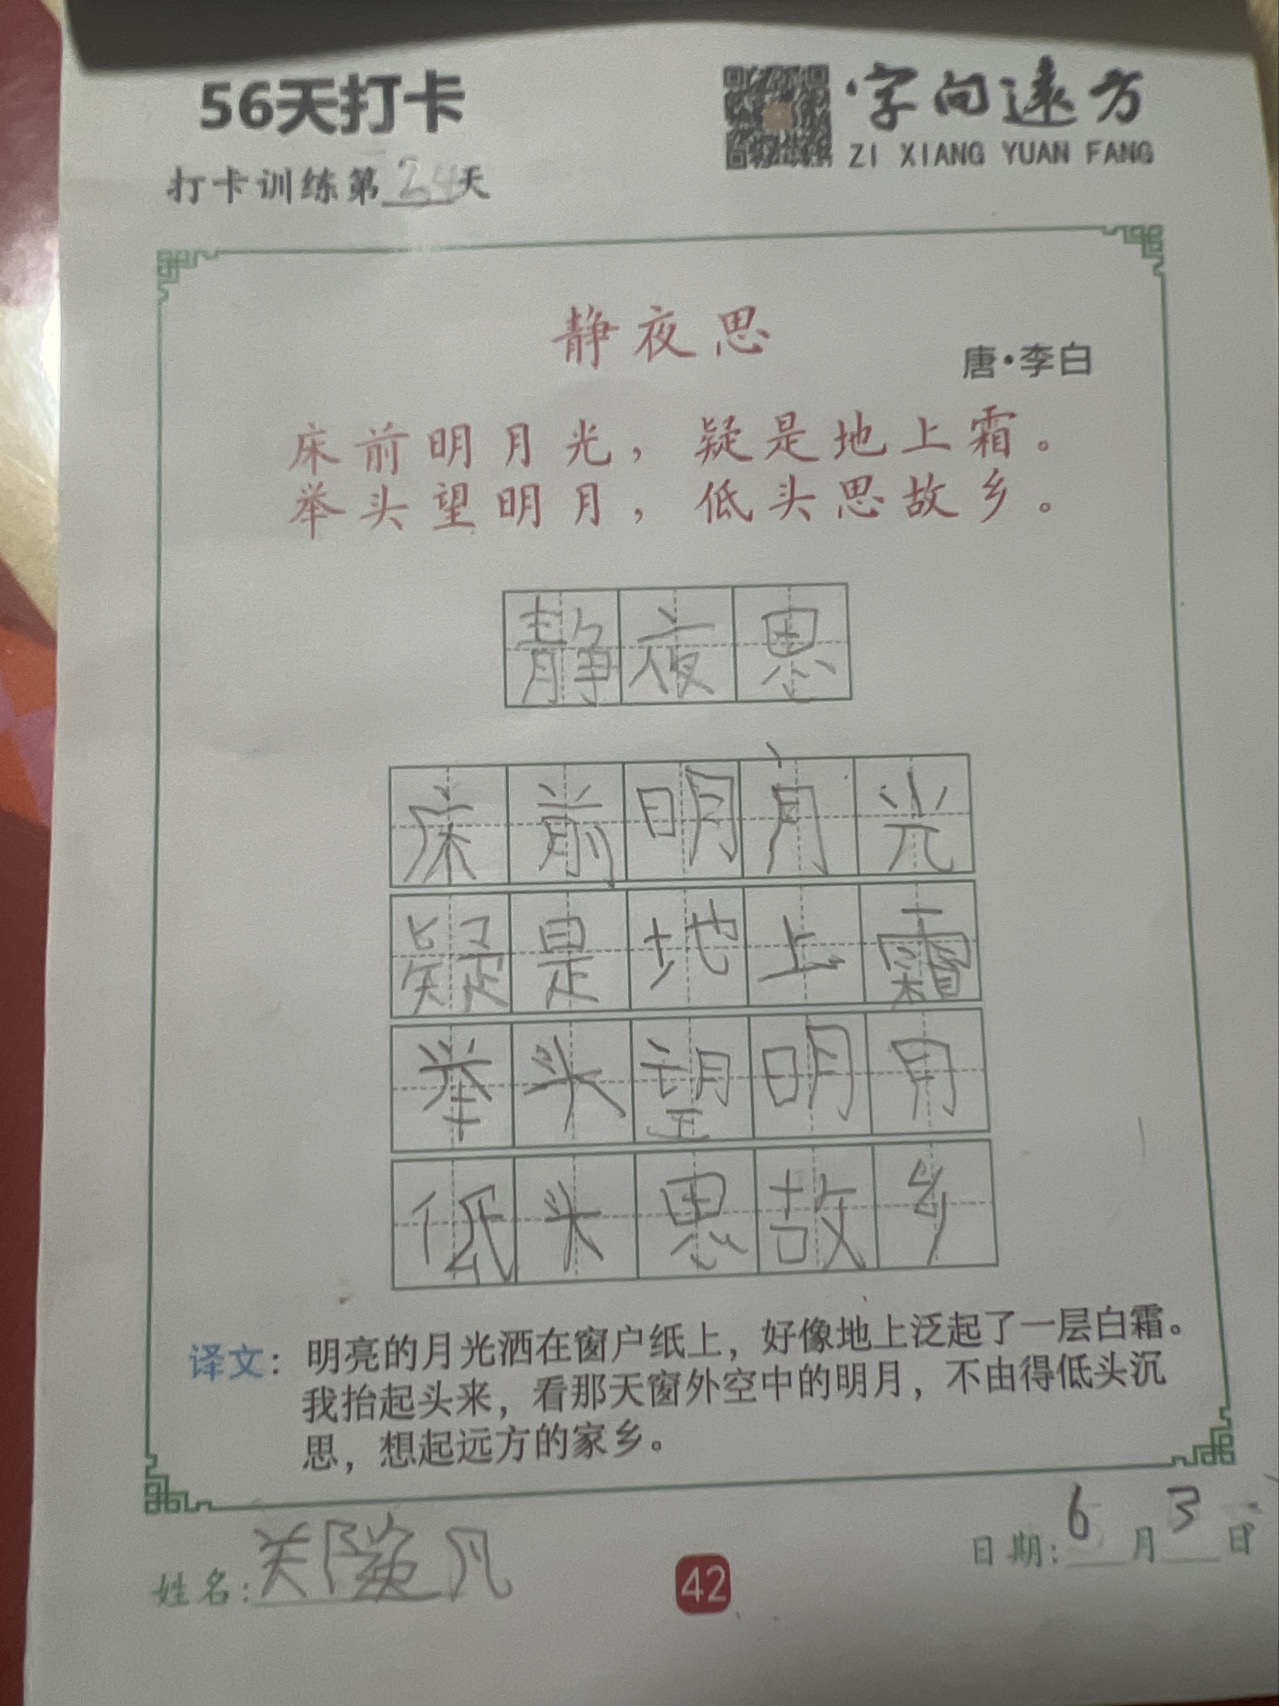 56天打卡
字向远方
ZI XIANG YUAN FANG
打卡训练第24天
静夜思
唐·李白
床前明月光，疑是地上霜。
举头望明月，低头思故乡。
静夜思
床前明月光
疑是地上霜
举头望明月
低头思故乡
译文：明亮的月光洒在窗户纸上，好像地上泛起了一层白霜。
我抬起头来，看那天窗外空中的明月，不由得低头沉
思，想起远方的家乡。
姓名：
日期：6月3日
42